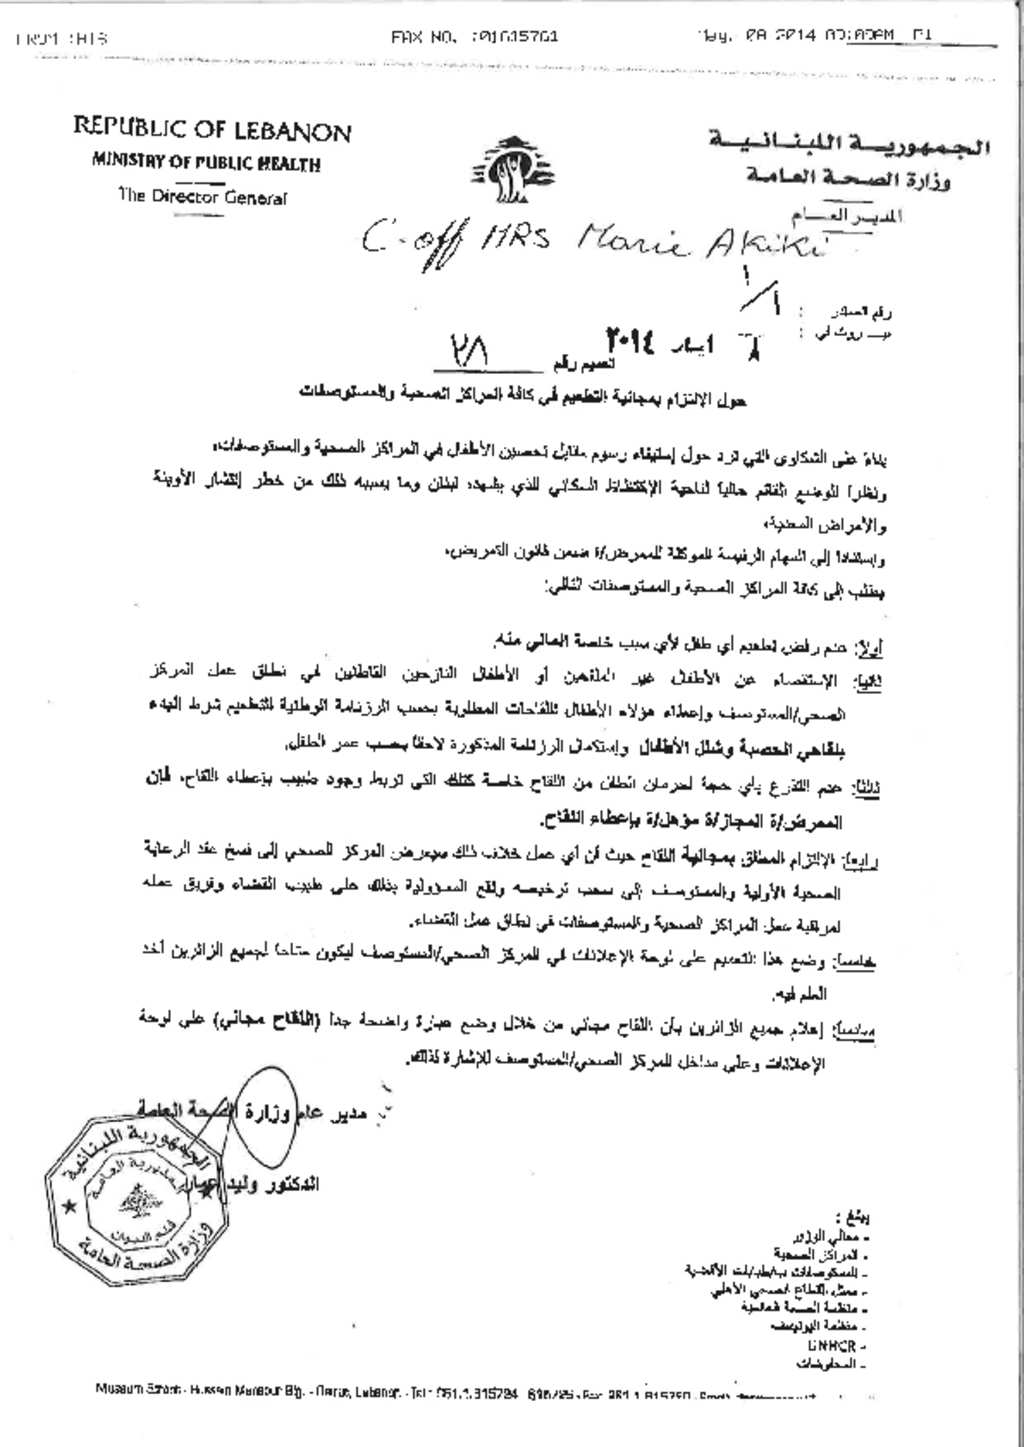 FAX NO. :01615761
May. 08 2014 P1
REPUBLIC OF LEBANON
MINISTRY OF PUBLIC HEALTH
The Director General
الجمهورية اللبنانية
وزارة الصحة العامة
المدير العام
MRS Marie Akiki
رقم الصادر :
بيروت في : ٨ ايار ٢٠١٤
تعميم رقم ٢٨
حول الإلتزام بمجانية التطعيم في كافة المراكز الصحية والمستوصفات
بناءً على الشكاوى التي ترد حول إستيفاء رسوم مقابل تحصين الأطفال في المراكز الصحية والمستوصفات،
ونظراً للوضع القائم حالياً لناحية الإكتظاظ السكاني الذي يشهده لبنان وما يسببه ذلك من خطر إنتشار الأوبئة
والأمراض المعدية،
وإستناداً إلى المهام الرئيسة الموكلة للممرض/ة ضمن قانون التمريض،
يطلب إلى كافة المراكز الصحية والمستوصفات التالي:
أولاً: عدم رفض تطعيم أي طفل لأي سبب خاصة المالي منه.
ثانياً: الإستقصاء عن الأطفال غير الملقحين أو الأطفال النازحين القاطنين في نطاق عمل المركز
الصحي/المستوصف وإعطاء هؤلاء الأطفال اللقاحات المطلوبة بحسب الرزنامة الوطنية للتطعيم شرط البدء
بلقاحي الحصبة وشلل الأطفال وإستكمال الرزنامة المذكورة لاحقاً بحسب عمر الطفل.
ثالثاً: عدم التذرع بأي حجة لحرمان الطفل من اللقاح خاصة كتلك التي تربط وجود طبيب بإعطاء اللقاح، فإن
الممرض/ة المجاز/ة مؤهل/ة بإعطاء اللقاح.
رابعاً: الإلتزام المطلق بمجانية اللقاح حيث أن أي عمل خلاف ذلك سيعرض المركز الصحي إلى فسخ عقد الرعاية
الصحية الأولية والمستوصف إلى سحب ترخيصه وتقع المسؤولية بذلك على طبيب القضاء وفريق عمله
لمراقبة عمل المراكز الصحية والمستوصفات في نطاق عمل القضاء.
خامساً: وضع هذا التعميم على لوحة الإعلانات في المركز الصحي/المستوصف ليكون متاحاً لجميع الزائرين أخذ
العلم فيه.
سادساً: إعلام جميع الزائرين بأن اللقاح مجاني من خلال وضع عبارة واضحة جداً (اللقاح مجاني) على لوحة
الإعلانات وعلى مداخل المركز الصحي/المستوصف للإشارة لذلك.
مدير عام وزارة الصحة العامة
الدكتور وليد عمار
الجمهورية اللبنانية
المديرية العامة
قلم الديوان
وزارة الصحة العامة
يبلغ :
- معالي الوزير
- المراكز الصحية
- المستوصفات الأقضية
- ممثل القطاع الصحي الأهلي
- منظمة الصحة العالمية
- منظمة اليونيسف
- UNHCR
- المحفوظات
Museum Street - Hussein Mansour Blg. - Beirut, Lebanon. - Tel :